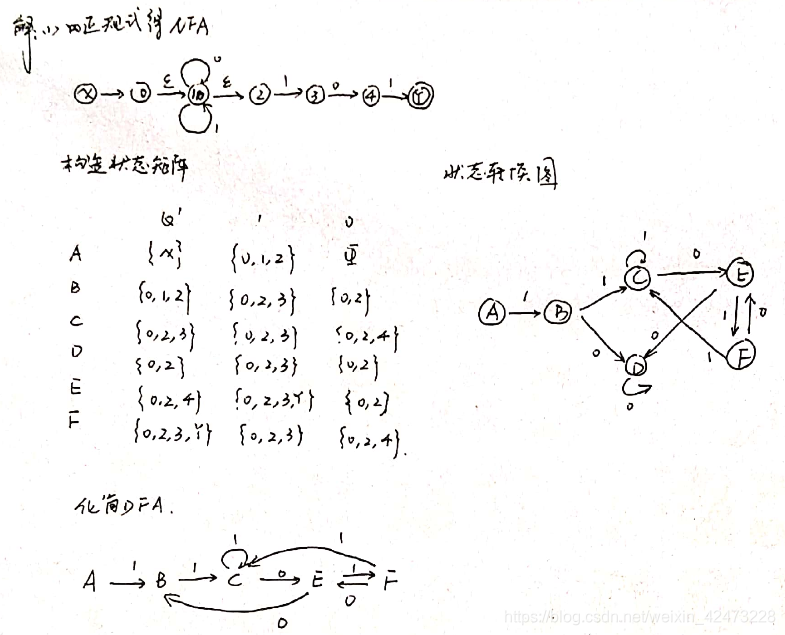 解:(1) 由正规式得NFA
X → 0 ε 10 ε 2 1 3 0 4 1 Y
0
1
构造状态矩阵
状态转换图
Q' 1 0
A {X} {0,1,2} Φ
B {0,1,2} {0,2,3} {0,2}
C {0,2,3} {0,2,3} {0,2,4}
D {0,2} {0,2,3} {0,2}
E {0,2,4} {0,2,3,Y} {0,2}
F {0,2,3,Y} {0,2,3} {0,2,4}.
A 1 B 1 C 0 E
1
0 D 0 1 0
0 1 F
化简DFA.
1 1
A 1 B 1 C 0 E 1 F
0
0
https://blog.csdn.net/weixin_42473228